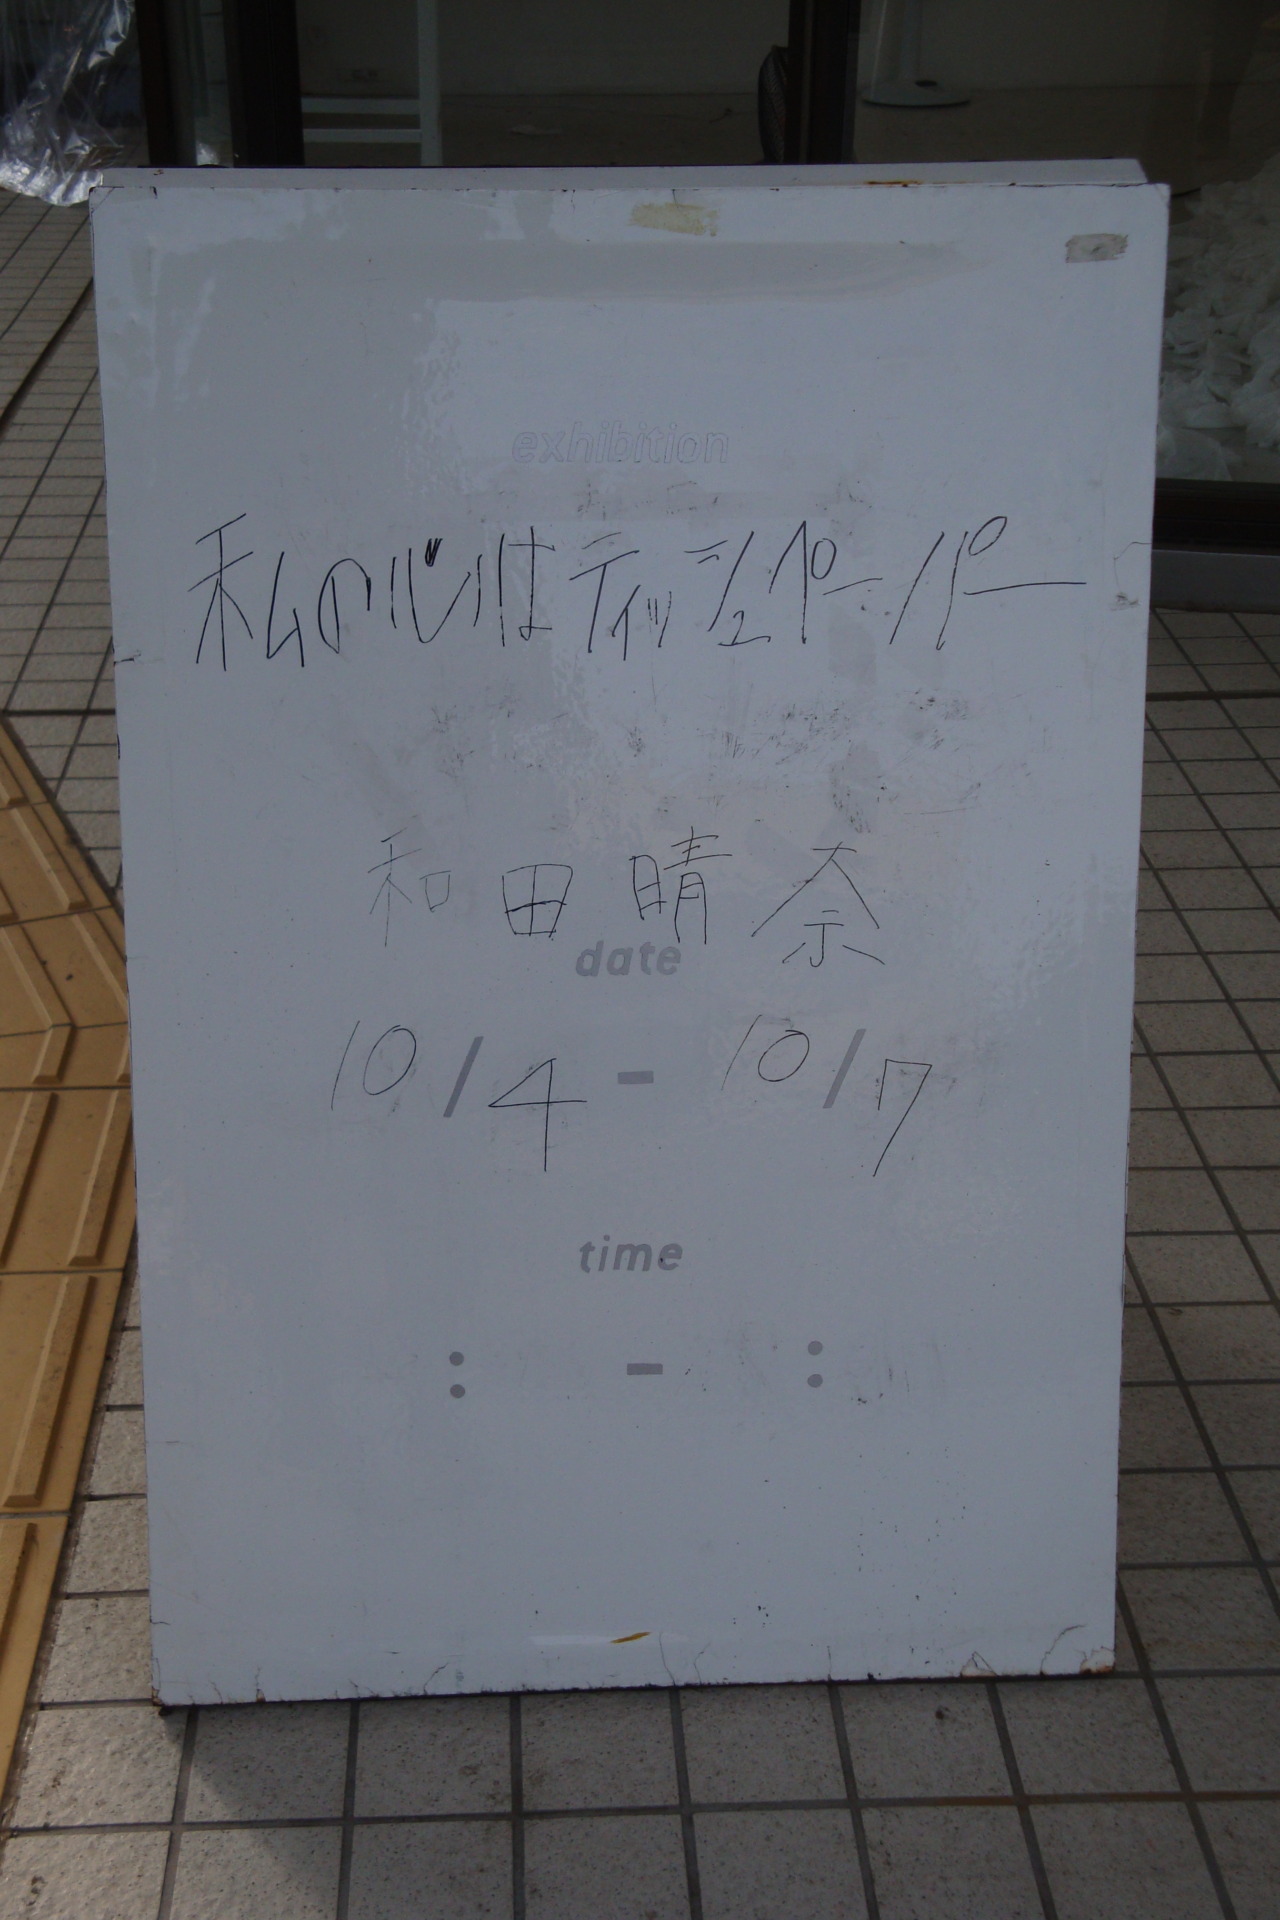 exhibition
私の心はティッシュペーパー
和田晴奈
date
10/4 - 10/7
time
: - :